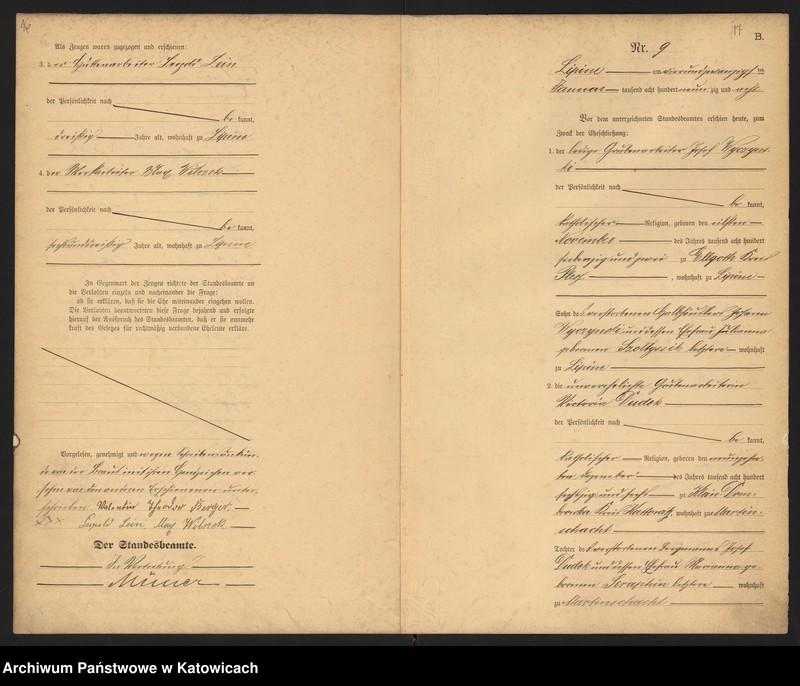 Als Zeugen waren zugezogen und erschienen:
3. der Hüttenarbeiter Leopold Lein
der Persönlichkeit nach
be kannt,
dreißig Jahre alt, wohnhaft zu Lipine
4. der Werkarbeiter Max Wilczek
der Persönlichkeit nach
be kannt,
sechsunddreißig Jahre alt, wohnhaft zu Lipine
In Gegenwart der Zeugen richtete der Standesbeamte an
die Verlobten einzeln und nacheinander die Frage:
ob sie erklären, daß sie die Ehe miteinander eingehen wollen.
Die Verlobten beantworteten diese Frage bejahend und erfolgte
hierauf der Ausspruch des Standesbeamten, daß er sie nunmehr
kraft des Gesetzes für rechtmäßig verbundene Eheleute erkläre.
Vorgelesen, genehmigt und wegen Schreibensunkun-
de von der Braut mit ihrem Handzeichen ver-
sehen von den anderen Erschienenen unter-
schrieben Valentin Theodor Berger.
XXX Leopold Lein Max Wilczek
Der Standesbeamte.
In Vertretung
17
B.
Nr. 9
Lipine am vierundzwanzigsten
Januar tausend acht hundert neun zig und acht
Vor dem unterzeichneten Standesbeamten erschien heute, zum
Zweck der Eheschließung:
1. der ledige Grubenarbeiter Josef Wyczyns-
ki
der Persönlichkeit nach
be kannt,
katholischer Religion, geboren den elften
November des Jahres tausend acht hundert
siebenzig und zwei zu Ellgoth Kreis
, wohnhaft zu Lipine
Sohn des verstorbenen Johann
Wyczynski und dessen Ehefrau Julianna
geborenen letztere wohnhaft
zu Lipine
2. die unverehelichte Grubenarbeiterin
Victoria Dudek
der Persönlichkeit nach
be kannt,
katholischer Religion, geboren den neunzehn-
ten Dezember des Jahres tausend acht hundert
sechszig und sechs zu Klein Dom-
browka Kreis Kattowitz, wohnhaft zu Martin-
schacht
Tochter des verstorbenen Bergmanns Josef
Dudek und dessen Ehefrau Marianna ge-
borenen Seraphin letztere wohnhaft
zu Martinschacht
Archiwum Państwowe w Katowicach